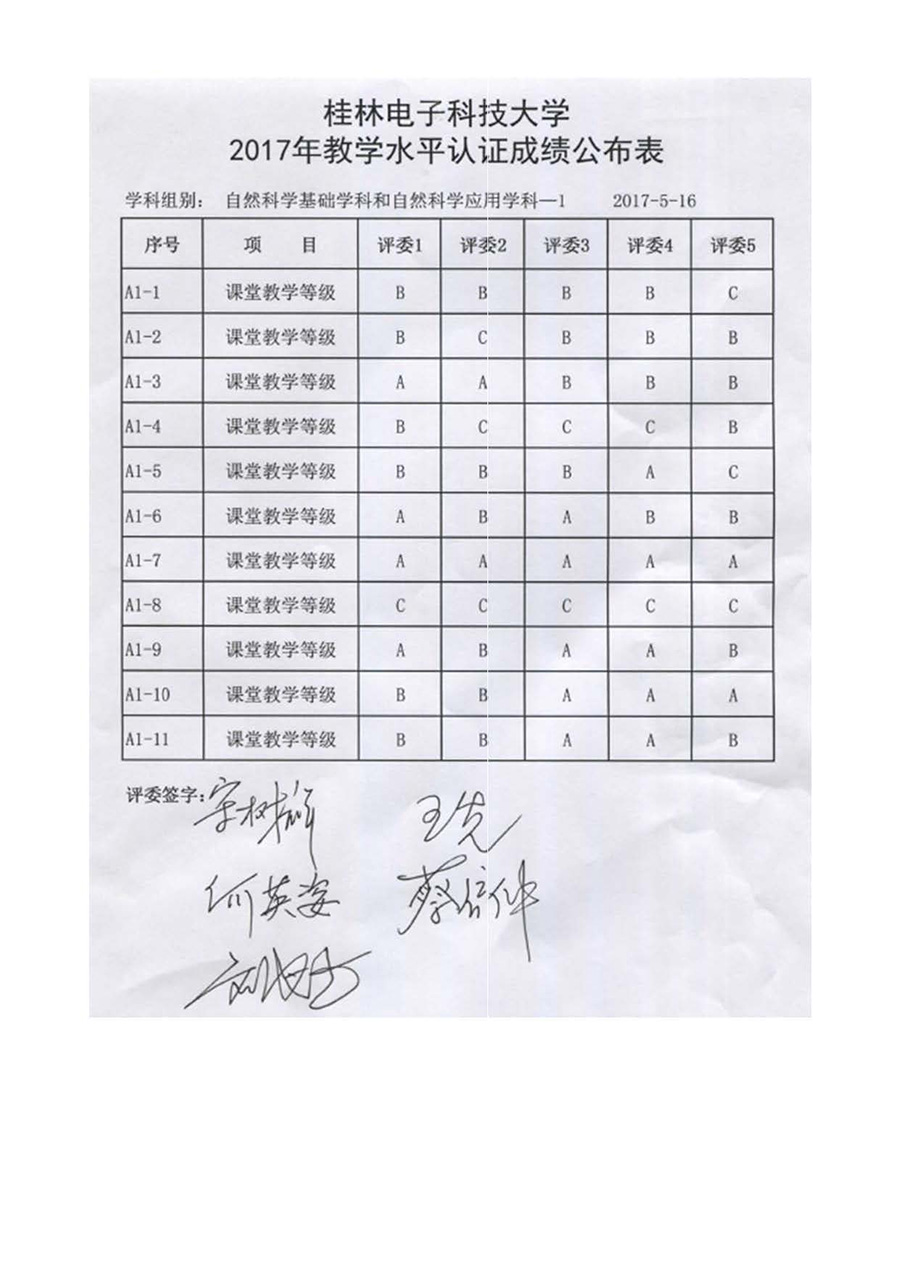 桂林电子科技大学
2017年教学水平认证成绩公布表
学科组别： 自然科学基础学科和自然科学应用学科—1 2017-5-16
序号 项 目 评委1 评委2 评委3 评委4 评委5
A1-1 课堂教学等级 B B B B C
A1-2 课堂教学等级 B C B B B
A1-3 课堂教学等级 A A B B B
A1-4 课堂教学等级 B C C C B
A1-5 课堂教学等级 B B B A C
A1-6 课堂教学等级 A B A B B
A1-7 课堂教学等级 A A A A A
A1-8 课堂教学等级 C C C C C
A1-9 课堂教学等级 A B A A B
A1-10 课堂教学等级 B B A A A
A1-11 课堂教学等级 B B A A B
评委签字：
何英姿